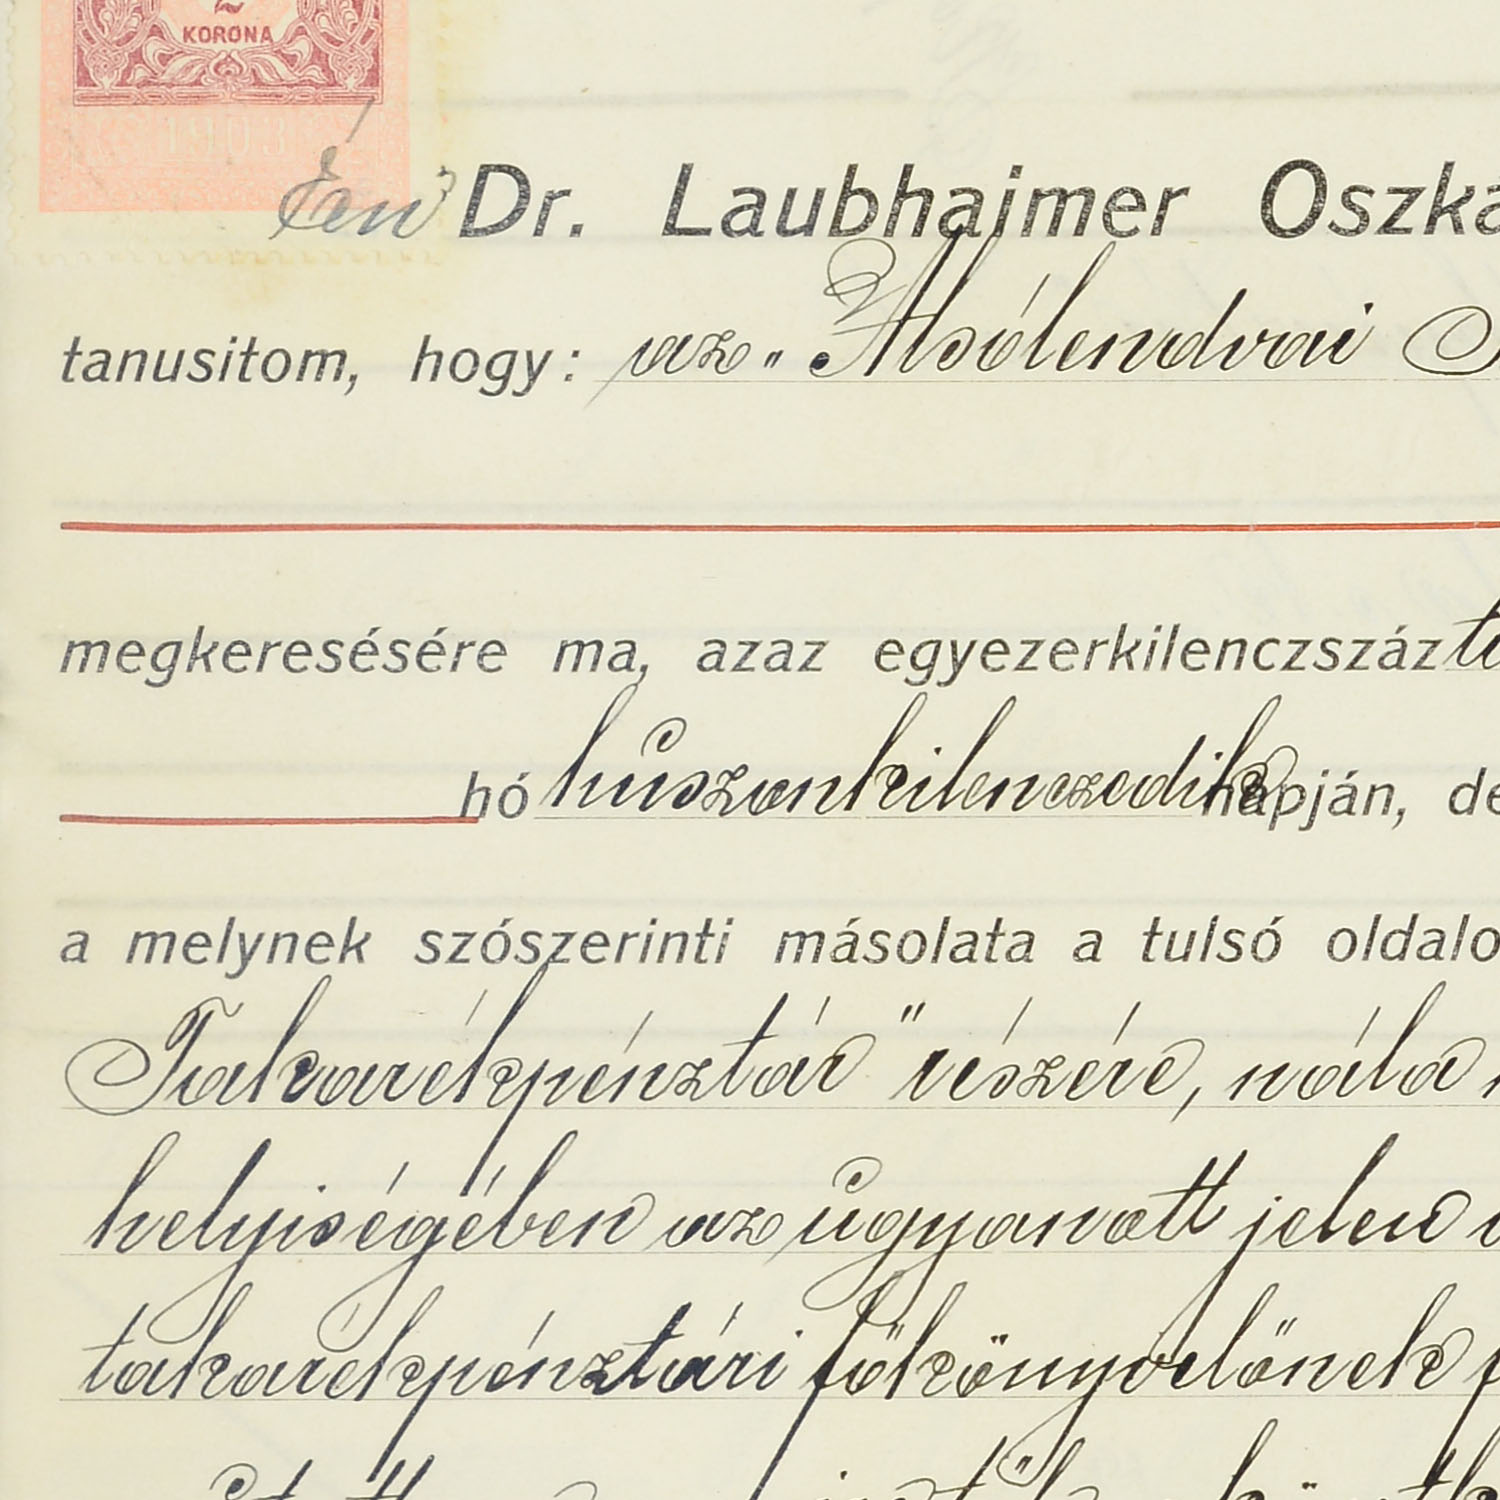 2
KORONA
1903
Én Dr. Laubhaimer Oszká
tanusitom, hogy: az „Alsólendvai
megkeresésére ma, azaz egyezerkilenczszáz
hó húszonkilenczedik napján, de
a melynek szószerinti másolata a tulsó oldalo
Takarékpénztár" részére, nála
helyiségében az ugyanott jelen
takarékpénztári főkönyvelőnek